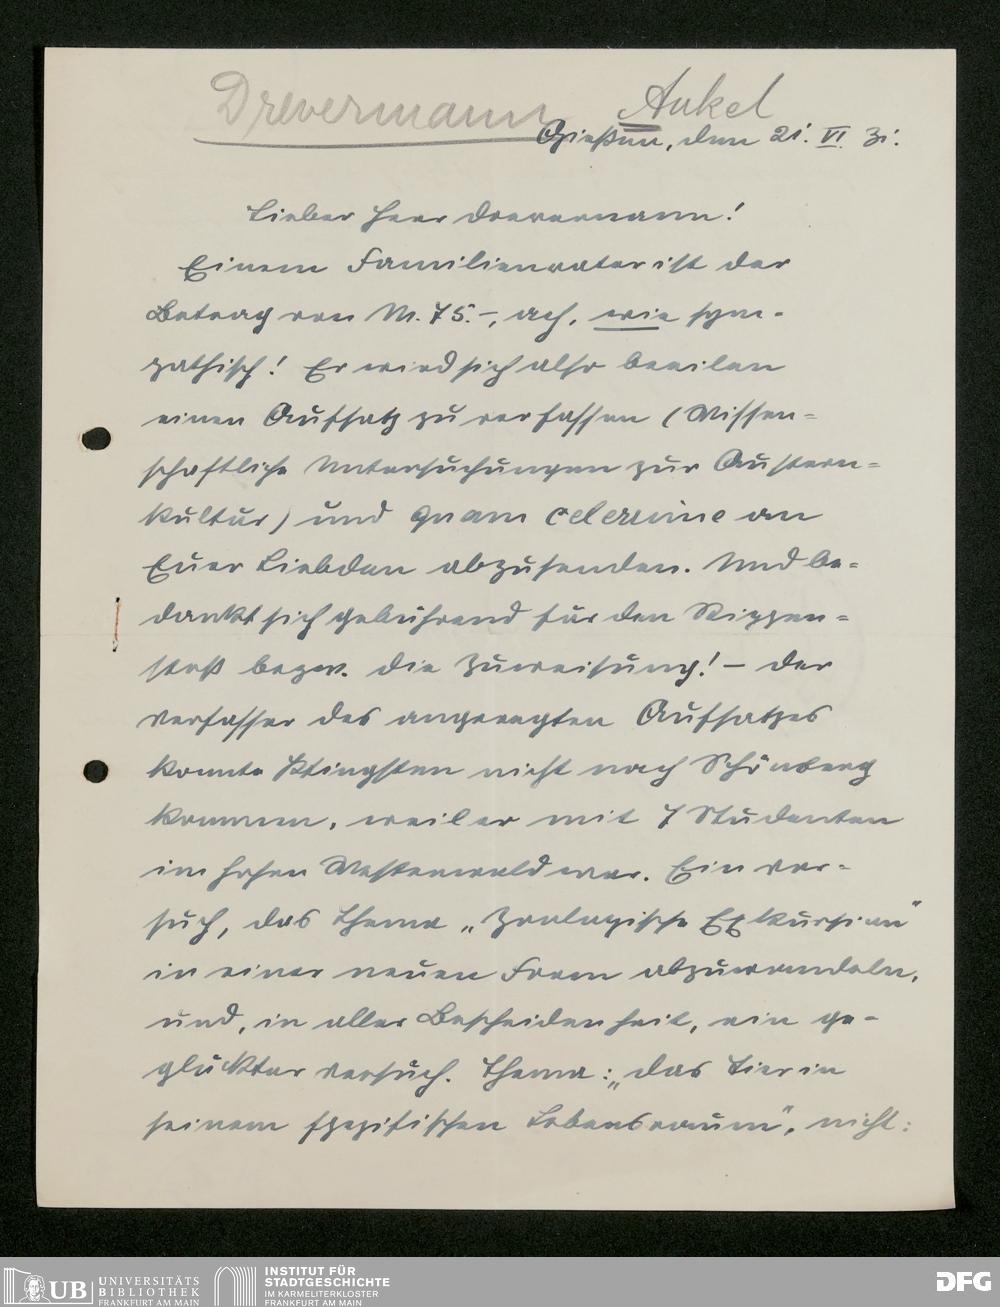 Drevermann Ankel
Gießen, den 21. VI. 31.
Lieber Herr Drevermann!
Einem Familienvater ist der
Betrag von M. 75.-, ach, wie sym-
pathisch! Er wird sich also beeilen
einen Aufsatz zu verfassen (Wissen=
schaftliche Untersuchungen zur Austern=
kultur) und quam celerrime an
Euer Liebden abzusenden. Und be=
dankt sich gebührend für den Rippen=
stoß bezw. die Zuweisung! – Der
Verfasser des angeregten Aufsatzes
konnte Pfingsten nicht nach Schönberg
kommen, weil er mit 7 Studenten
im hohen Westerwald war. Ein Ver-
such, das Thema „Zoologische Exkursion"
in einer neuen Form abzuwandeln,
und, in aller Bescheidenheit, ein ge-
glückter Versuch. Thema: „Das Tier in
seinem spezifischen Lebensraum", nicht:
UB UNIVERSITÄTS
BIBLIOTHEK
FRANKFURT AM MAIN
INSTITUT FÜR
STADTGESCHICHTE
IM KARMELITERKLOSTER
FRANKFURT AM MAIN
DFG